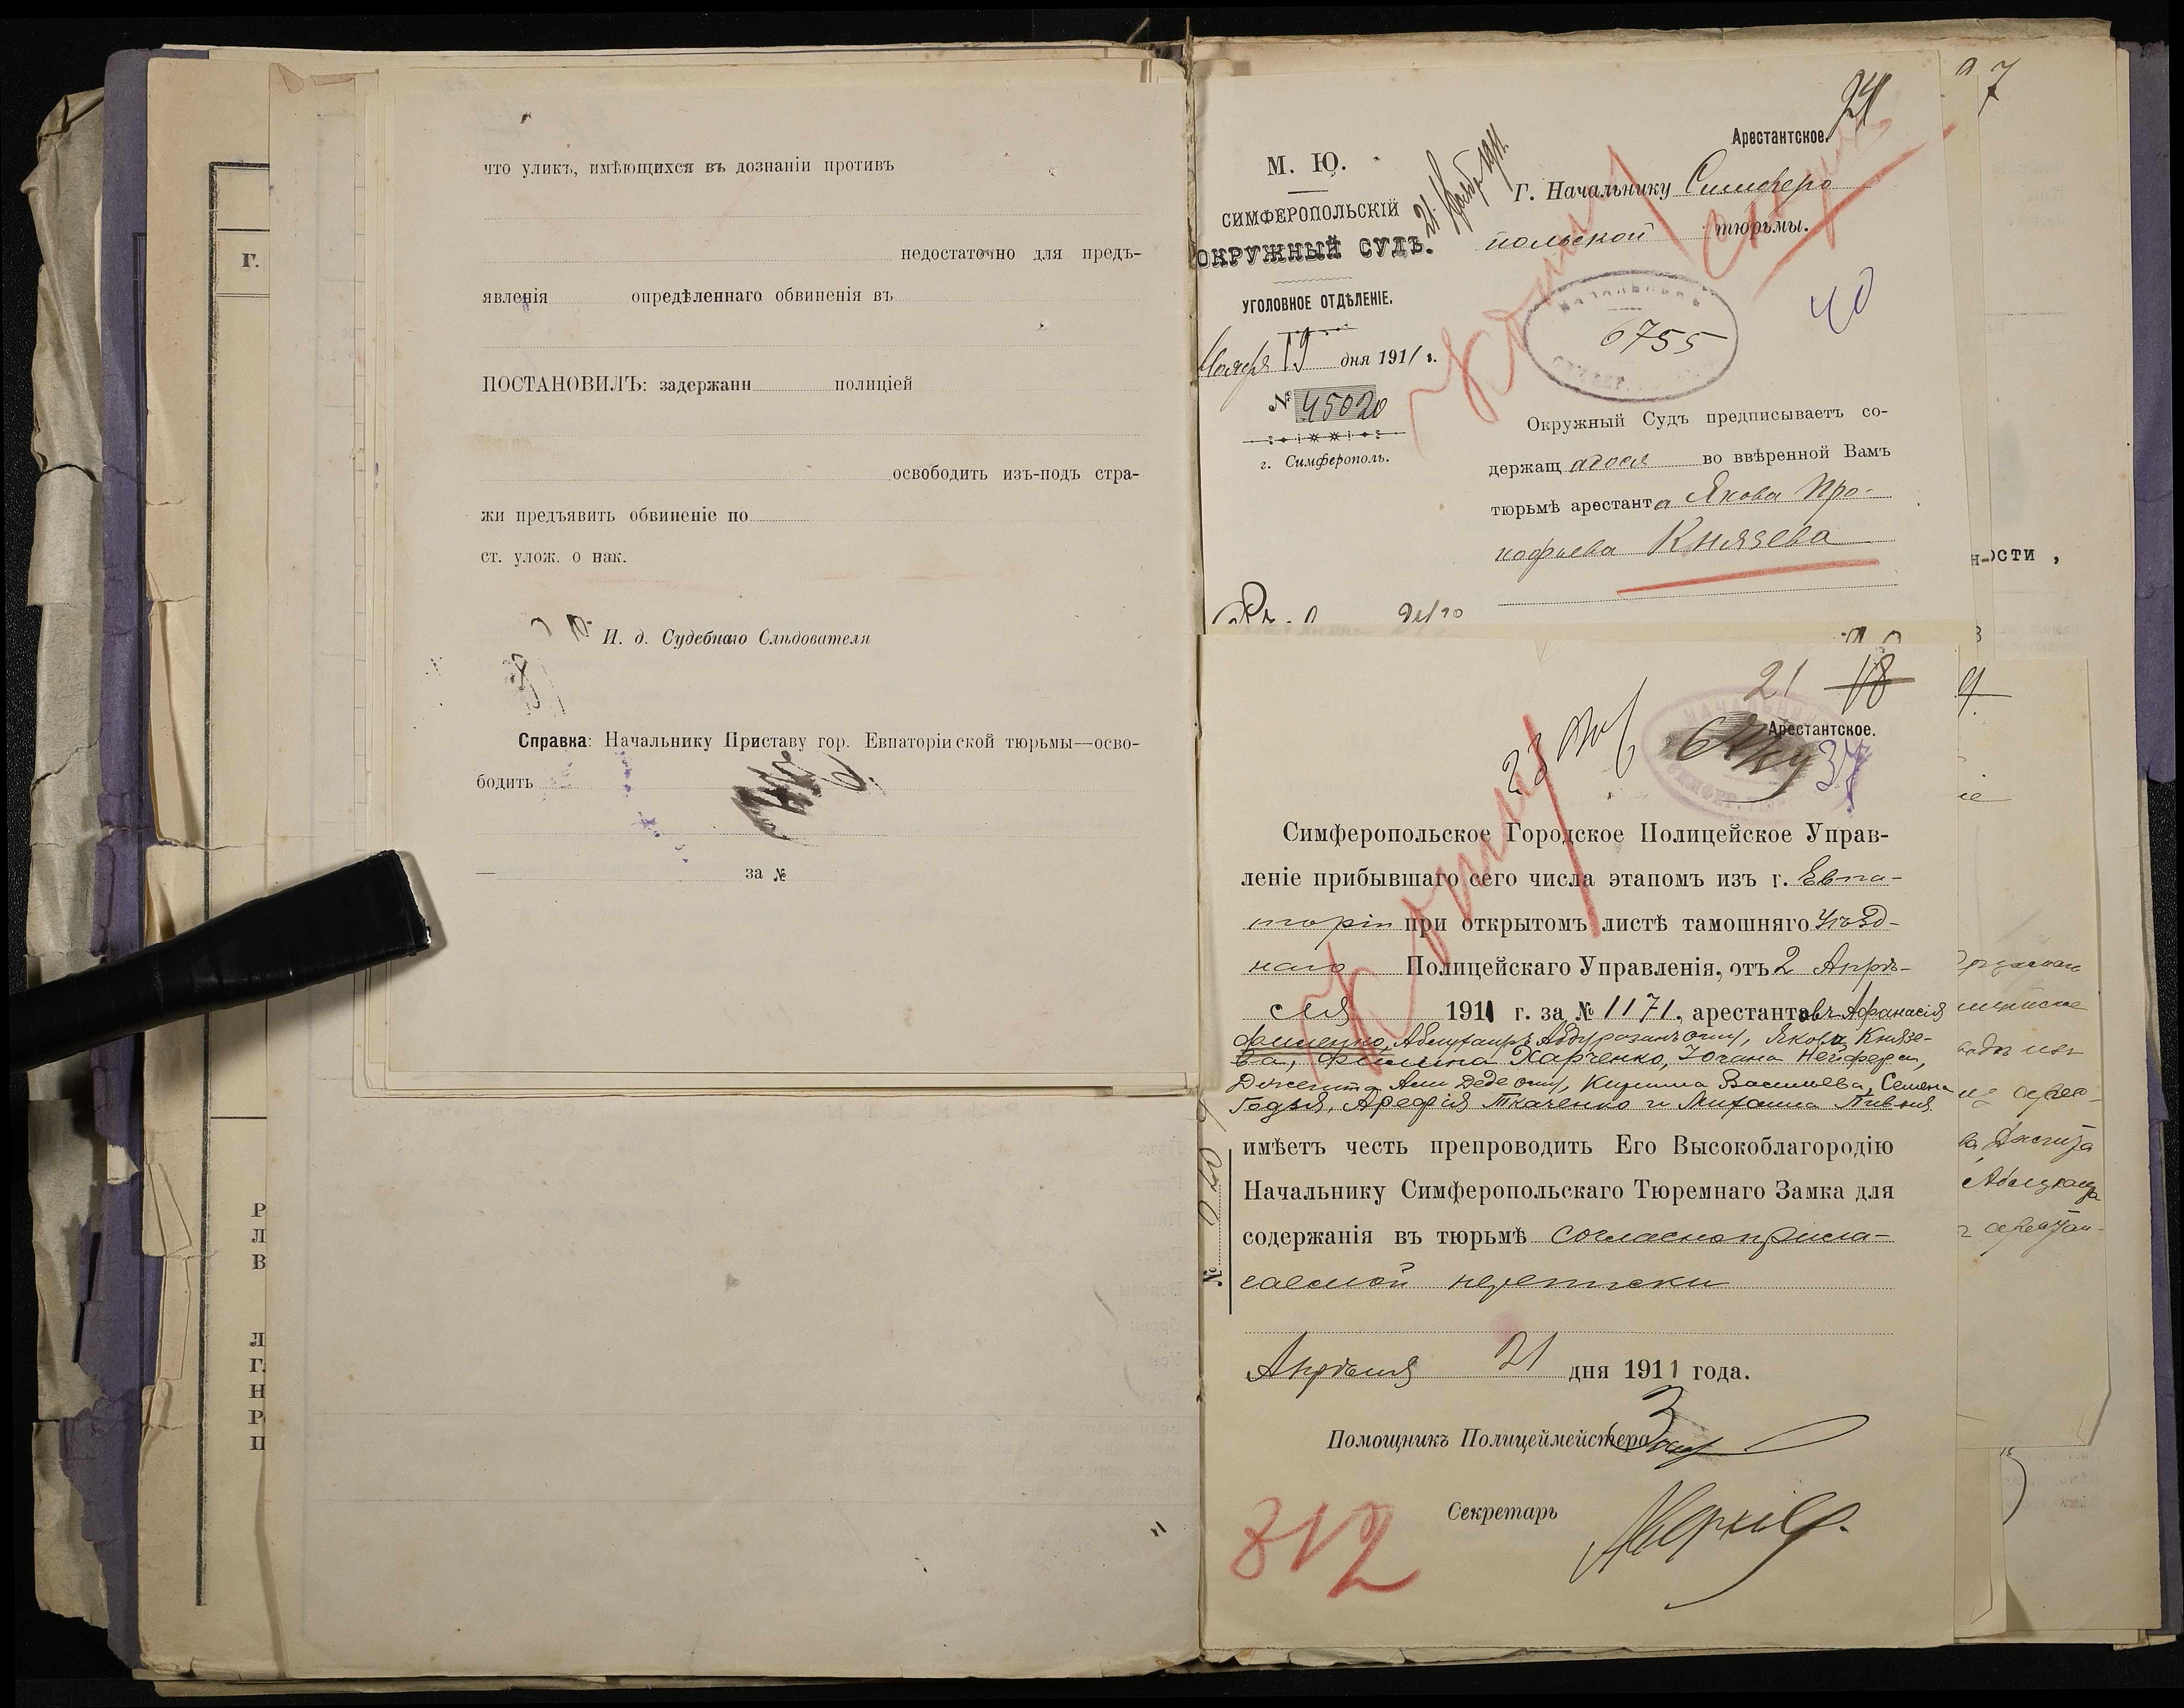 что уликъ, имѣющихся въ дознаніи противъ
недостаточно для предъ-
явленія опредѣленнаго обвиненія въ
ПОСТАНОВИЛЪ: задержанн полиціей
освободить изъ-подъ стра-
жи предъявить обвиненіе по
ст. улож. о нак.
И. д. Судебнаго Слѣдователя
Справка: Начальнику Приставу гор. Евпаторійской тюрьмы—осво-
бодить
за №
Г.
Р
Л
В
Л
Г.
Н
Р
П
7
24
Арестантское.
М. Ю.
СИМФЕРОПОЛЬСКІЙ
ОКРУЖНЫЙ СУДЪ.
УГОЛОВНОЕ ОТДѢЛЕНІЕ.
Ноября 19 дня 1911 г.
№ 45020
г. Симферополь.
Г. Начальнику Симферо
польской тюрьмы.
6755
40
Окружный Судъ предписываетъ со-
держащ агося во ввѣренной Вамъ
тюрьмѣ арестанта Якова Про-
кофьева Князева
н-ости ,
21 18
Арестантское.
37
Симферопольское Городское Полицейское Управ-
леніе прибывшаго сего числа этапомъ изъ г. Евпа-
торіи при открытомъ листѣ тамошняго Уѣзд-
наго Полицейскаго Управленія, отъ 2 Апрѣ-
ля 1911 г. за № 1171, арестантовъ Афанасія
Фименко, Якова Князе-
ва, Харченко, Іогана Нейфельд,
Деде оглу, Кирилла Васильева, Семена
Арефія Ткаченко и Михаила
имѣетъ честь препроводить Его Высокоблагородію
Начальнику Симферопольскаго Тюремнаго Замка для
содержанія въ тюрьмѣ согласно прила-
гаемой переписки
№
Апрѣля 21 дня 1911 года.
Помощникъ Полицеймейстера
Секретарь
312